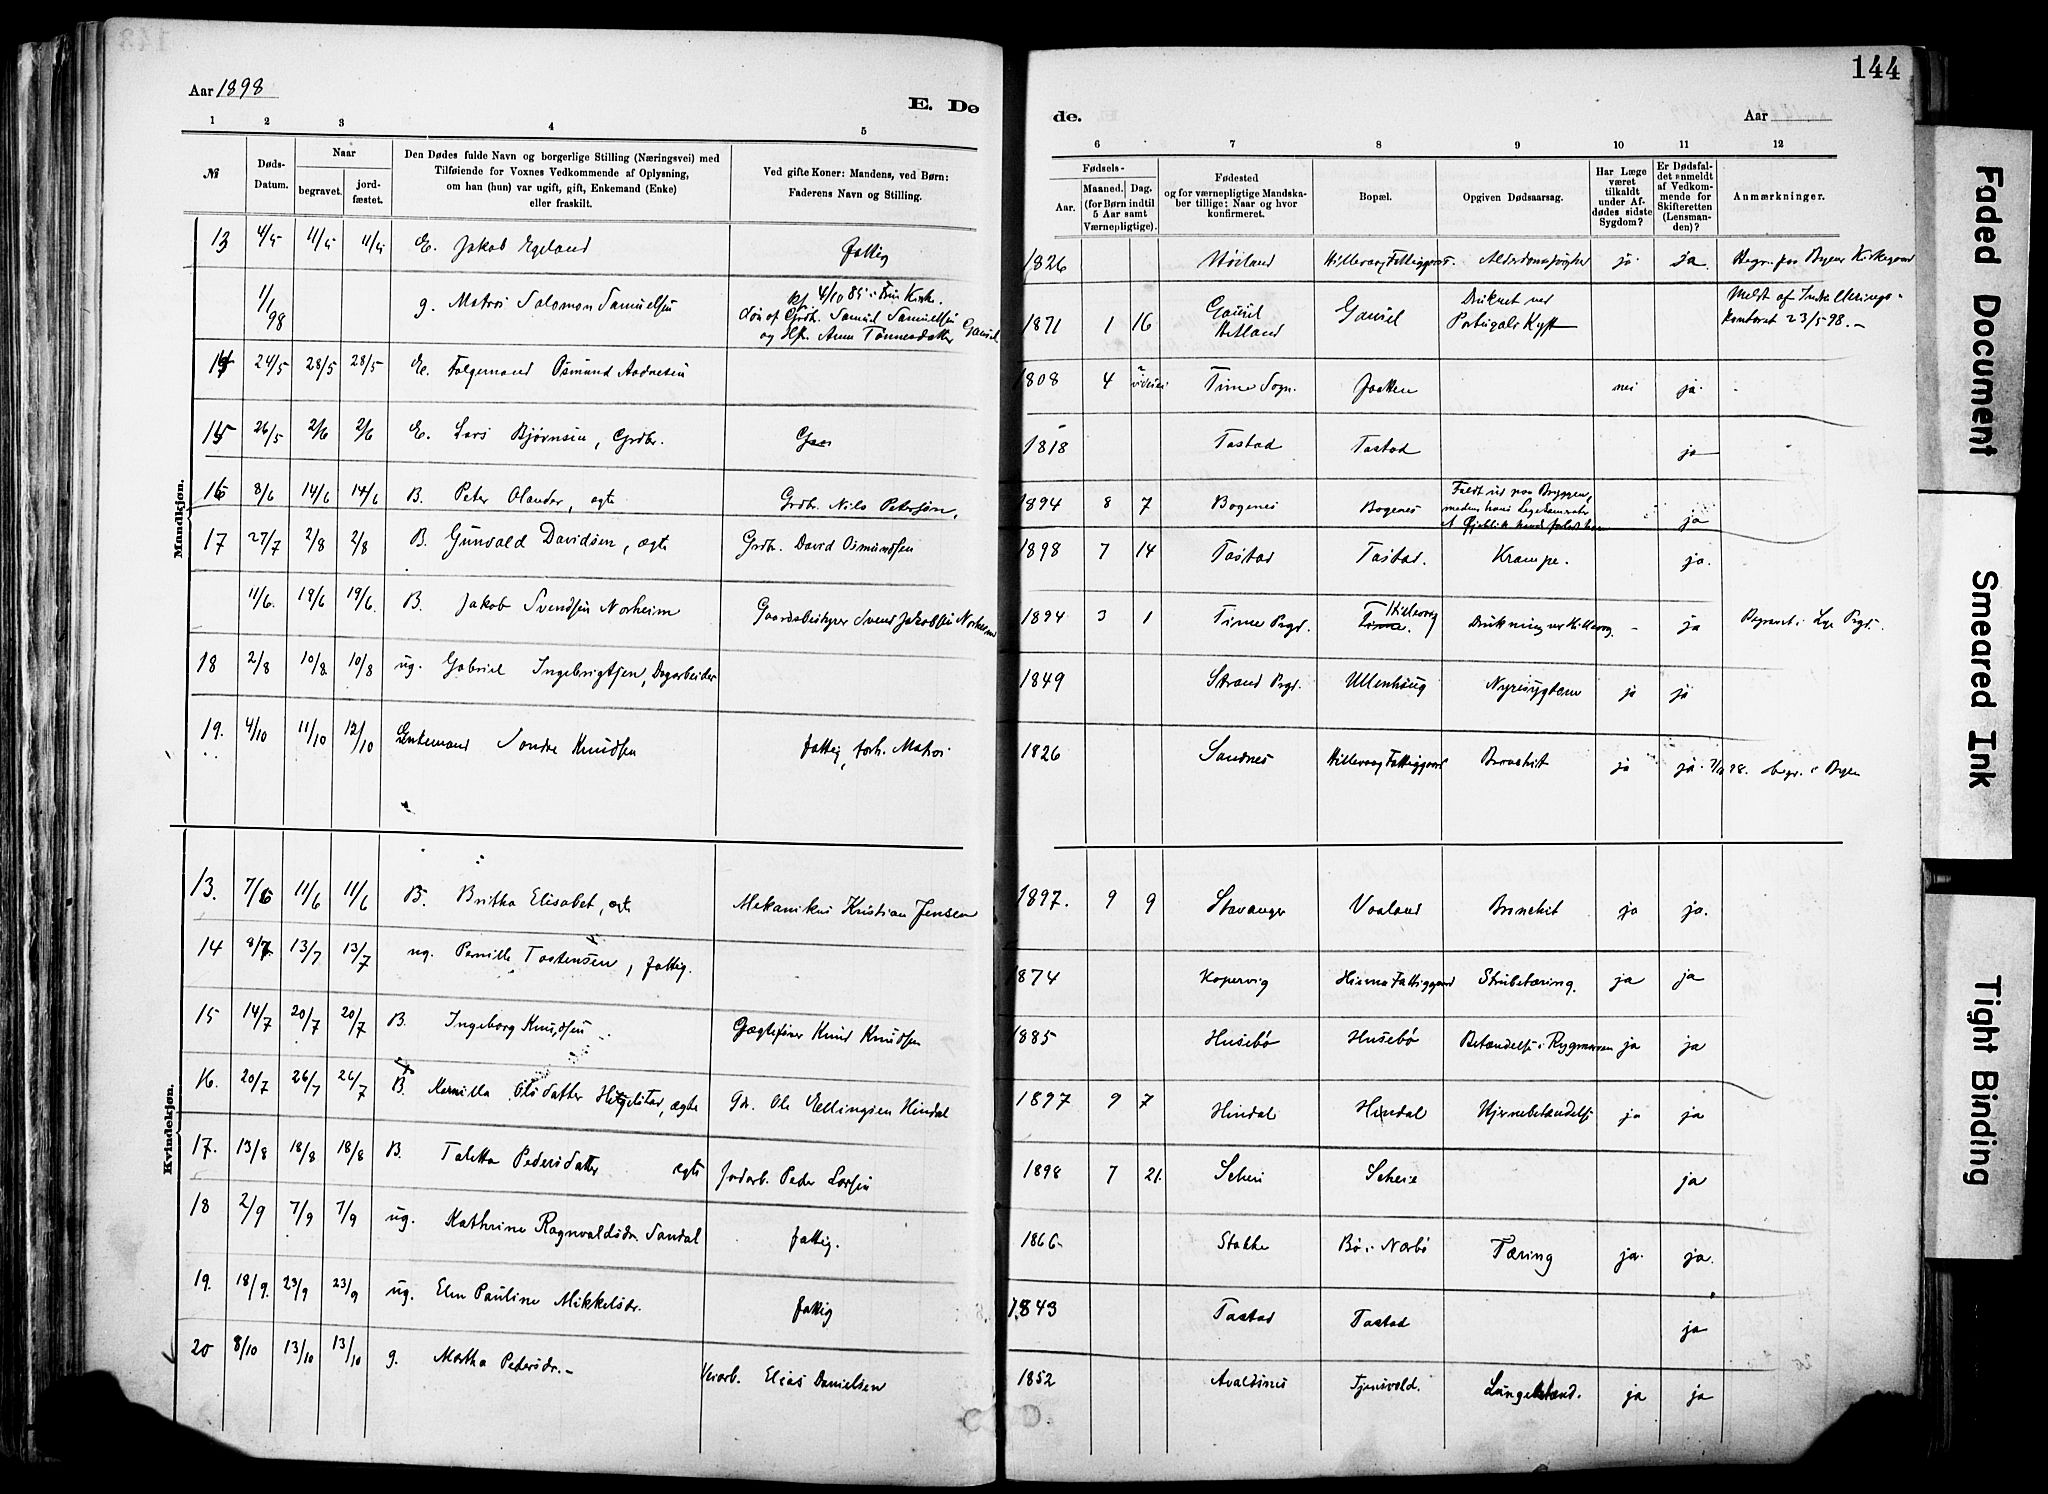 144
Aar 1898
E. Dø
de.
Aar
1 2 3 4 5
6 7 8 9 10 11 12
№
Døds-
Datum.
Naar
begravet.
jord-
fæstet.
Den Dødes fulde Navn og borgerlige Stilling (Næringsvei) med
Tilføiende for Voxnes Vedkommende af Oplysning,
om han (hun) var ugift, gift, Enkemand (Enke)
eller fraskilt.
Ved gifte Koner: Mandens, ved Børn:
Faderens Navn og Stilling.
Fødsels-
Aar.
Maaned. Dag.
(for Børn indtil
5 Aar samt
Værnepligtige).
Fødested
og for værnepligtige Mandska-
ber tillige: Naar og hvor
konfirmeret.
Bopæl.
Opgiven Dødsaarsag.
Har Læge
været
tilkaldt
under Af-
dødes sidste
Sygdom?
Er Dødsfal-
det anmeldt
af Vedkom-
mende for
Skifteretten
(Lensman-
den)?
Anmærkninger.
Mandkjøn.
13 E. Jakob Egeland fattig 1826 Høiland Hillevaag Fattiggaard ja ja Begr. paa Byens Kirkegaard
1/1 98 g. Matros Salomon Samuelsen
Søn af Grdbr. Samuel Samuelsen
og Hst. Anna Tønnesdatter Gausel
1871 1 16 Gausel
Hetland Gausel Druknet ved
Portugals Kyst Meldt af Indrulerings-
kontoret 23/5 98.-
14 24/5 28/5 28/5 E. Folgemand Osmund Aadnesen 1808 4 Time Sogn. Jaatten nei ja.
15 26/5 2/6 2/6 E. Lars Bjørnsen, Grdbr. 1818 Tastad Tastad ja
16 8/6 14/6 14/6 B. Peter Olander, ægte Grdbr. Nils Petersen. 1894 8 7 Bogenes Bogenes Faldt ud paa Bryggen,
ja
17 27/7 2/8 2/8 B. Gunvald Davidsen, ægte Grdbr. David Osmundsen 1898 7 14 Tastad Tastad. Krampe. ja.
11/6. 19/6 19/6. B. Jakob Svendsen Norheim Gaardsbestyrer Svend Jakobsen Norheim 1894 3 1 Time Prgd. Hillevaag
Time. Drukning ved Hillevaag. - ja Begravet i Lye Prgd.
18 2/8 10/8 10/8 ug. Gabriel Ingebrigtsen, Dagarbeider 1849 Strand Prgd. Ullenhaug Nyresygdom ja ja
19. 4/10 11/10 12/10 Enkemand Sondre Knudsen fattig, forh. Matros 1826 Sandnes Hillevaag Fattiggaard Bronchit ja ja. begr. i Byen
Kvindekjøn.
13. 7/6 11/6 11/6 B. Britha Elisabet, ægte Mekanikus Kristian Jensen 1897. 9 9 Stavanger Vaaland Bronchit ja ja.
14 8/7. 13/7 13/7 ug. Pernille Tostensen, fattig. 1874 Kopervig Hinna Fattiggaard Strubetæring. ja ja
15 14/7 20/7 20/7 B. Ingeborg Knudsen Knud Knudsen 1885 Husebø Husebø Betændelse i Rygmarven ja ja
16. 20/7 26/7 26/7 B. Olsdatter ægte Gdr. Ole Ellingsen Hindal 1897 9 7 Hindal Hindal Hjernebetændelse ja ja
17. 13/8 18/8 18/8 B. Taletta Pedersdatter ægte Jordarb. Peder Larsen 1898 7 21. Scheie Scheie ja
18 2/9 7/9 7/9 ug. Kathrine Ragnvaldsdr. Sandal fattig. 1866 Stakke Bø i Narbø Tæring ja. ja.
19. 18/9. 23/9 23/9 ug. Elen Pauline Mikkelsdr. fattig 1843 Tastad Tastad ja
20 8/10 13/10 13/10 g. Martha Pedersdr.- Veiarb. Elias Danielsen 1852 Avaldsnes Tjensvold. Lungebetænd. ja ja
Faded Document
Smeared Ink
Tight Binding